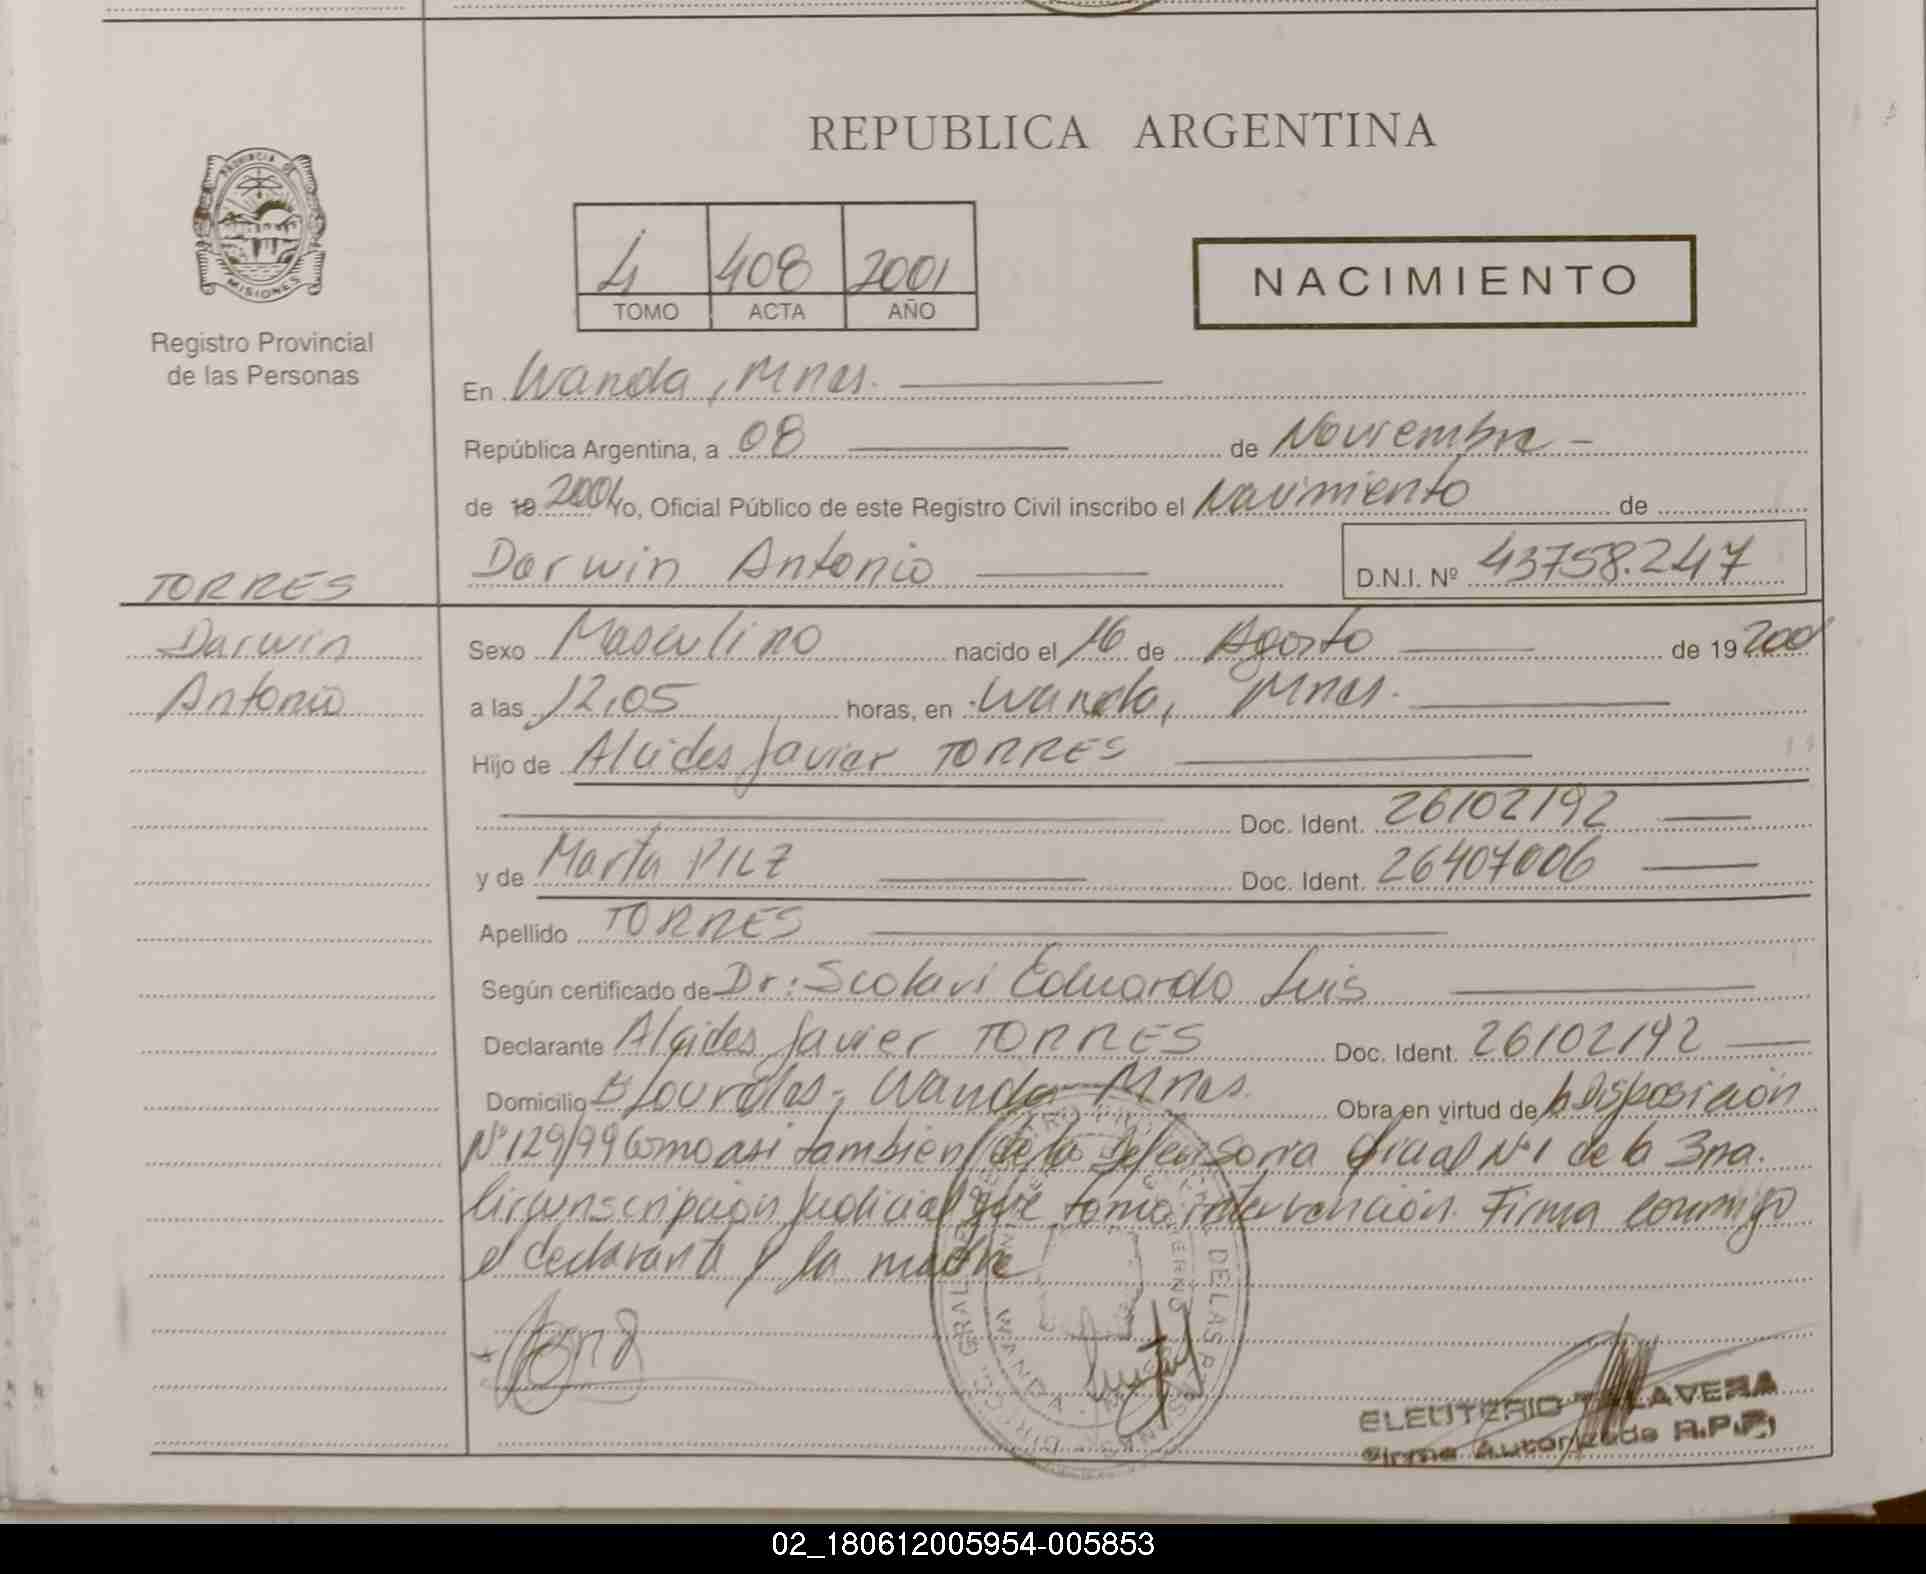 REPUBLICA ARGENTINA
PROVINCIA DE
MISIONES
Registro Provincial
de las Personas
4 408 2001
TOMO ACTA AÑO
NACIMIENTO
En Wanda, Mnes.
República Argentina, a 08 de Noviembre
de 19 2001 Yo, Oficial Público de este Registro Civil inscribo el Nacimiento de
TORRES
Darwin Antonio D.N.I. Nº 43758.247
Darwin
Antonio
Sexo Masculino nacido el 16 de Agosto de 19 2001
a las 12,05 horas, en Wanda, Mnes.
Hijo de Alcides Javier TORRES
Doc. Ident. 26102192
y de Marta PILZ Doc. Ident. 26407006
Apellido TORRES
Según certificado de Dr: Scolari Eduardo Luis
Declarante Alcides Javier TORRES Doc. Ident. 26102192
Domicilio Bº Lourdes, Wanda Mnes. Obra en virtud de la Disposición
Nº 129/99 como asi tambien de la Defensoria Oficial Nº 1 de la 3ra.
Circunscripción Judicial que toma intervención. Firma conmigo
el declarante y la madre
ELEUTERIO TALAVERA
Firma Autorizada R.P.P.
02_180612005954-005853